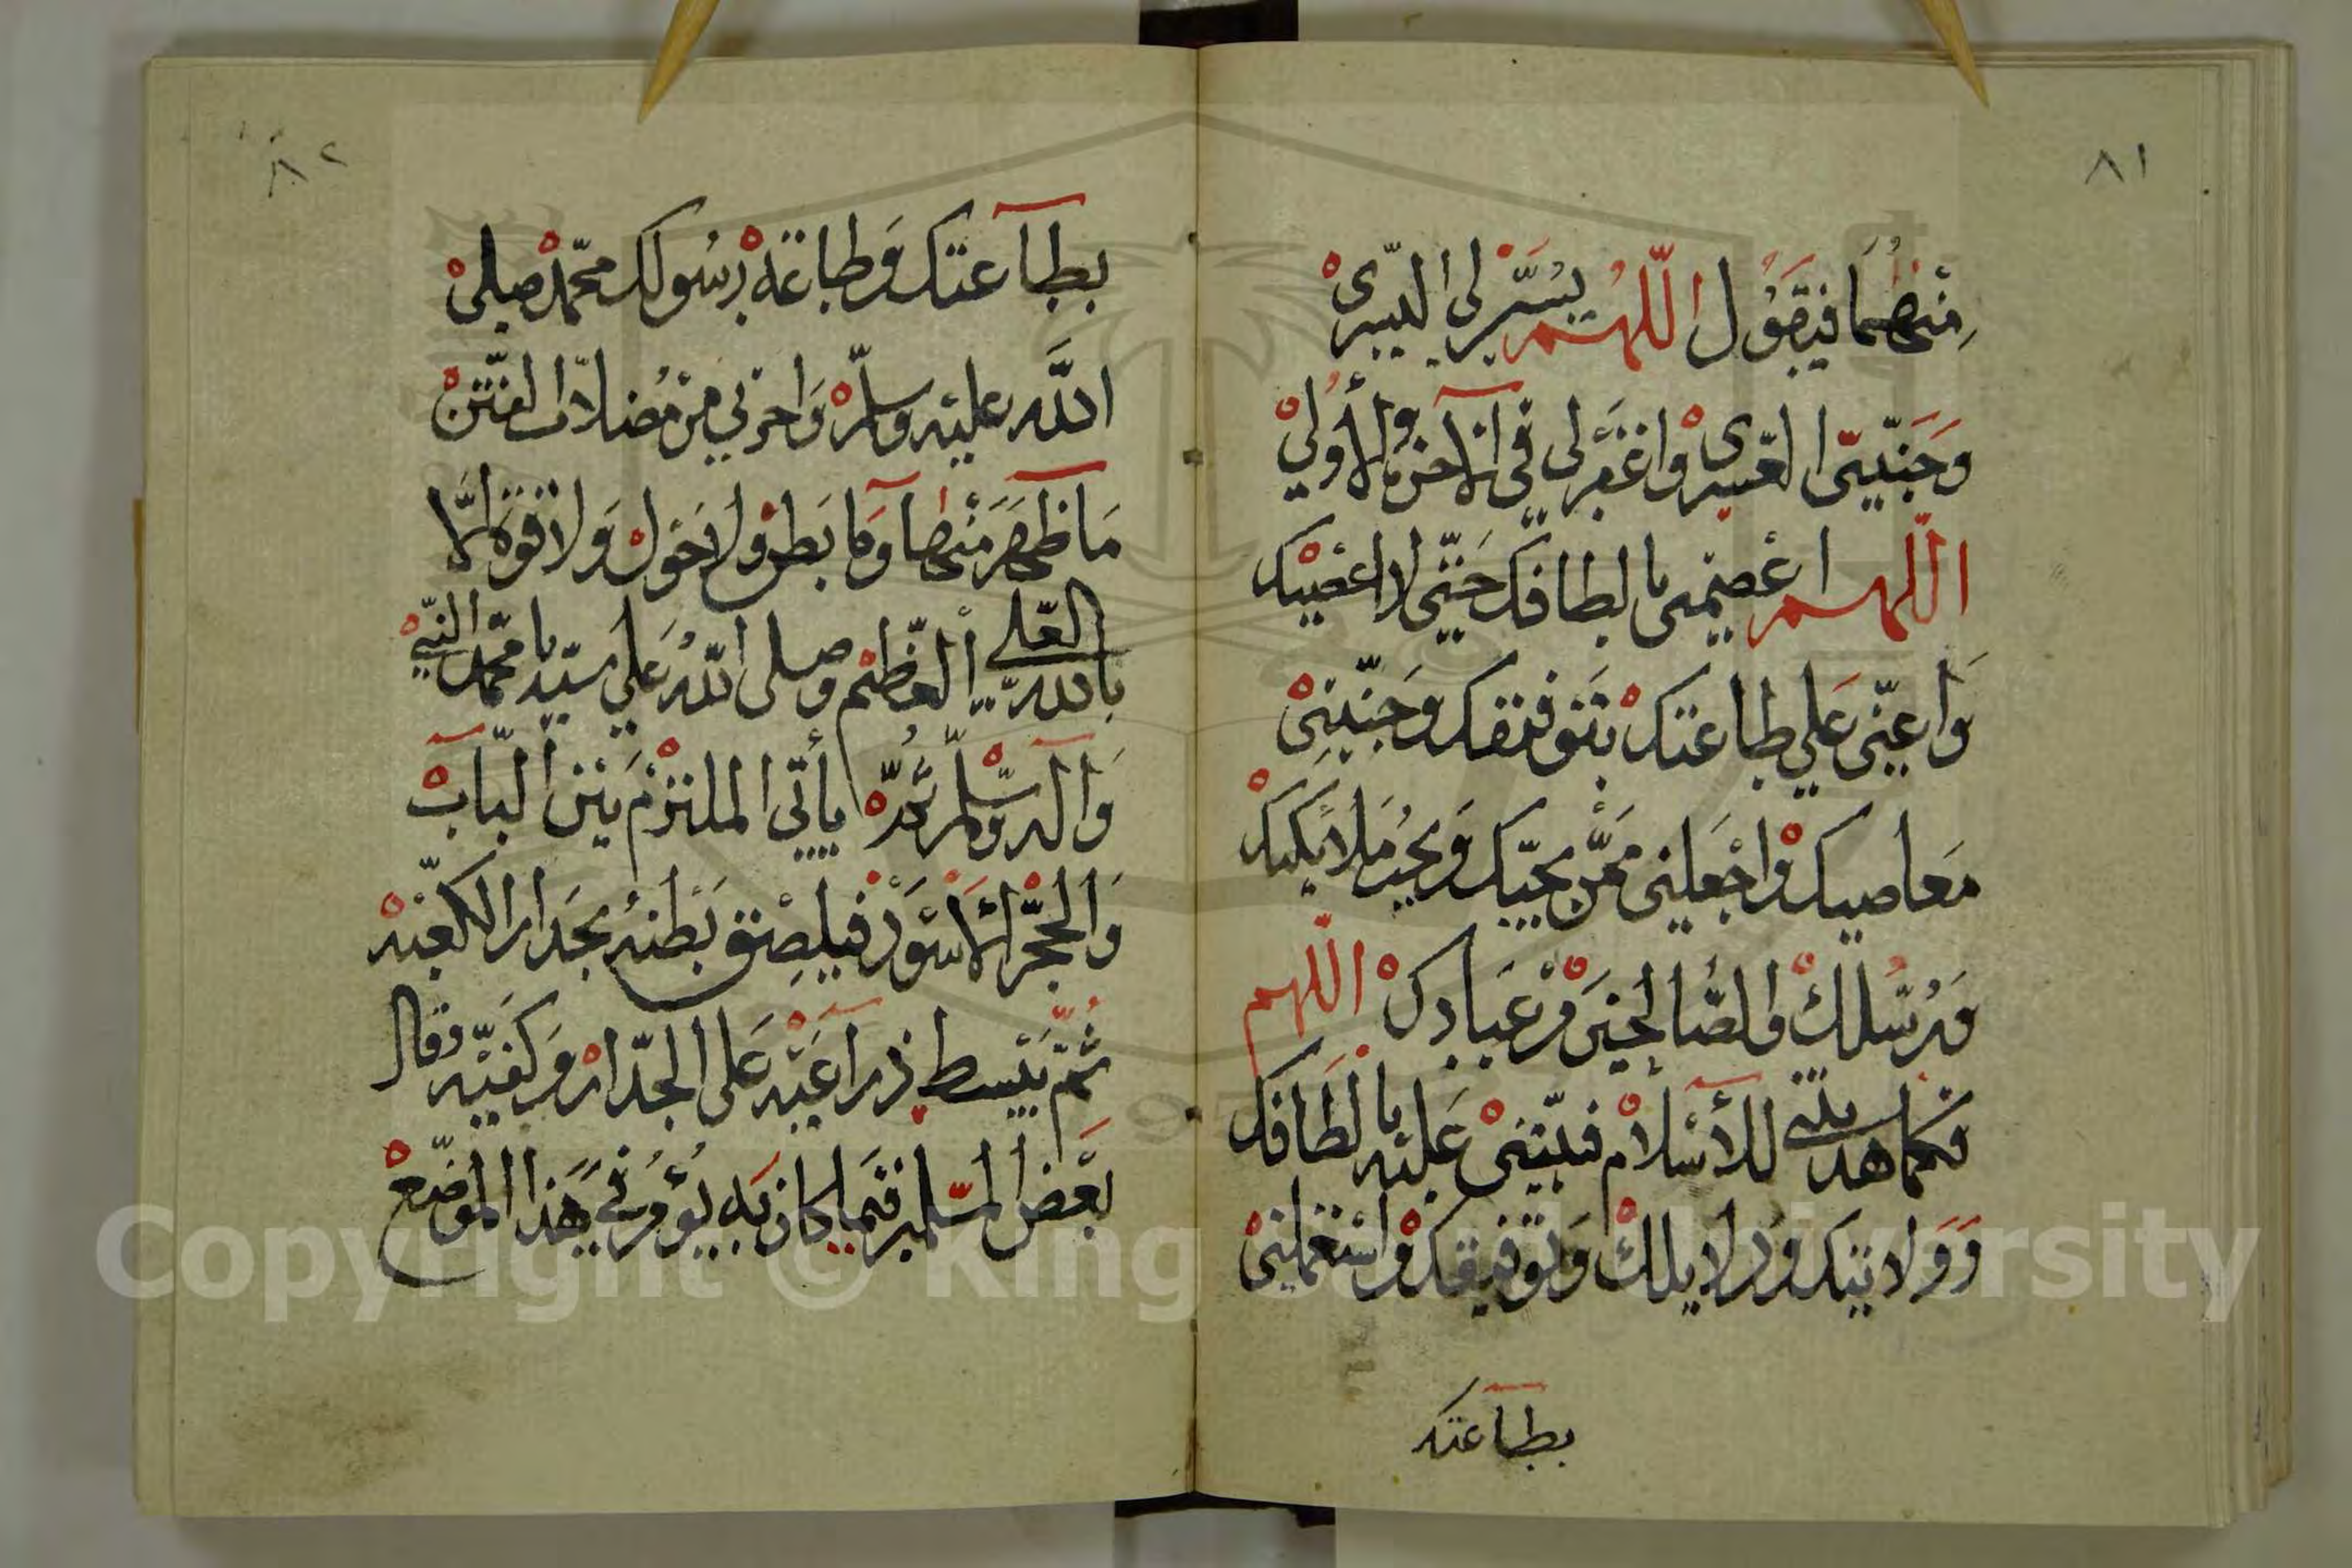 ٨١
منهما فيقول اللهم يسر لي اليسرى
وجنبني العسرى واغفر لي في الآخرة والأولى
اللهم اعصمني بالطافك حتى لا اعصيك
واعني على طاعتك بتوفيقك وجنبني
معاصيك واجعلني ممن يحبك ويحب ملائكتك
ورسلك والصالحين من عبادك اللهم
فكما هديتني للأسلام فثبتني عليه بالطافك
وولايتك ودلايلك وتوفيقك واستعملني
بطاعتك
٨٢
بطاعتك وطاعة رسولك محمد صلى
الله عليه وسلم واجرني من مضلات الفتن
ما ظهر منها وما بطن ولا حول ولا قوة الا
بالله العلي العظيم وصلى الله على سيدنا محمد النبي
وآله وسلم ثم يأتي الملتزم بين الباب
والحجر الأسود فيلصق بطنه بجدار الكعبه
ثم يبسط ذراعيه على الجدار وكفيه وقال
بعض المسلمين فيما كان به يؤمر في هذا الموضع
Copyright © King Saud University